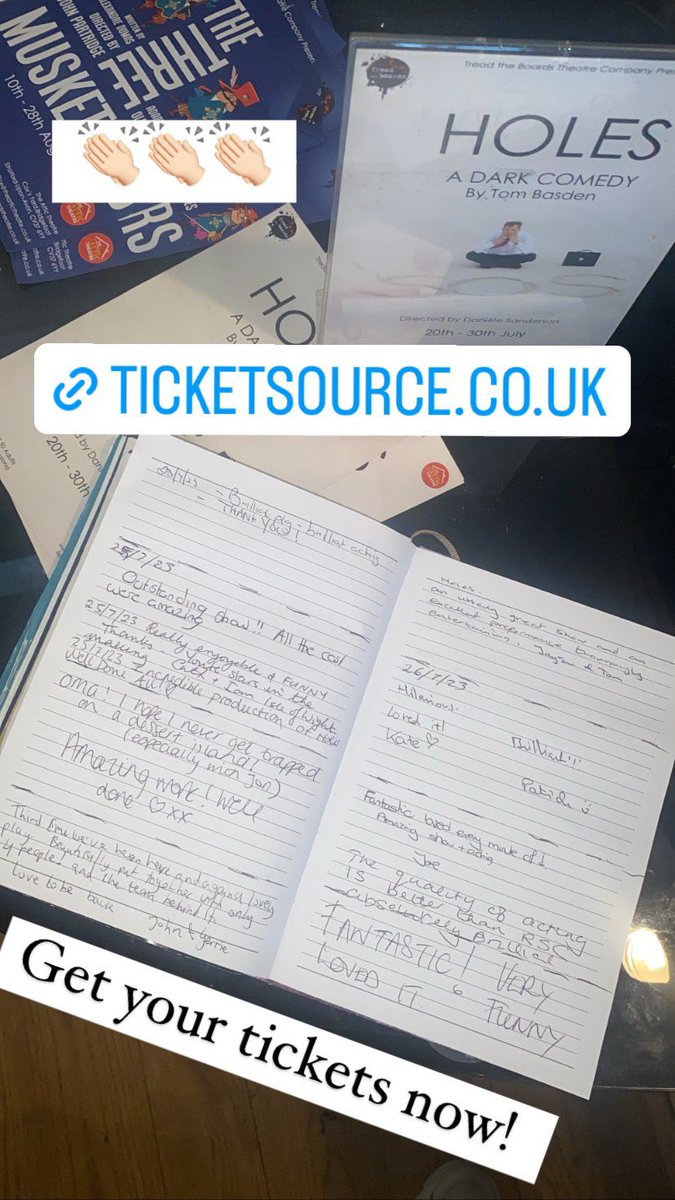 THE
THREE
MUSKETEERS
WRITTEN BY
ALEXANDRE DUMAS
DIRECTED BY
JOHN PARTRIDGE
10th - 28th Aug
The Attic Theatre
Tread the Boards Theatre Company
HOLES
A DARK COMEDY
By Tom Basden
SOS
Directed by Danièle Sanderson
20th - 30th July
HOLES
A DARK COMEDY
By
20th - 30th
TICKETSOURCE.CO.UK
- Brilliant play - brilliant acting
- THANK YOU!
25/7/23
Outstanding show!! All the cast
were amazing
25/7/23 Really enjoyable & FUNNY
Thanks - 
making
25/7/23 Incredible production of Holes
Well Done All!!
OMG! I hope I never get trapped
on a dessert island!
(especially with Jon)
Amazing work! Well
done ♡xx
Third time we've been here and again a lovely
play. Beautifully put together with only
4 people and the team behind it
Love to be back John &
Holes.
an utterly great show and an
excellent performance thoroughly
entertaining. & Tom
26/7/23
Hilarious.
Loved it!
Kate ♡
Brilliant!!!
Patrick
Fantastic loved every minute of it
Amazing show + acting
Joe
The quality of acting
is better than RSC
FANTASTIC! VERY
FUNNY
LOVED IT
Get your tickets now!